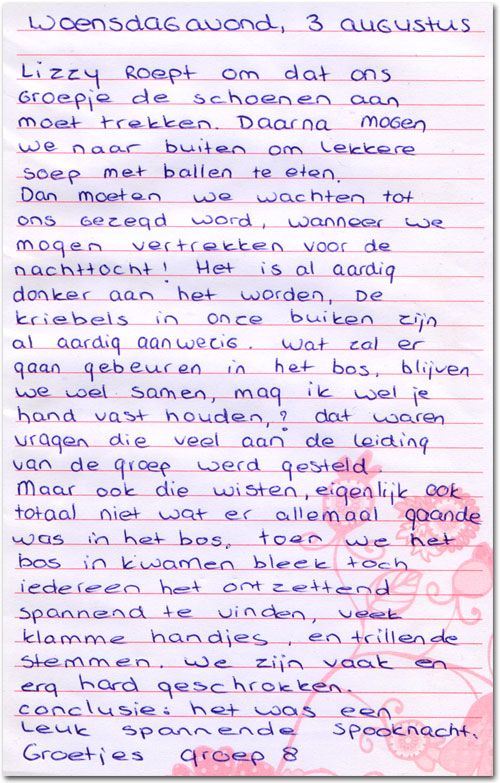 Woensdagavond, 3 augustus
Lizzy roept om dat ons
groepje de schoenen aan
moet trekken. Daarna mogen
we naar buiten om lekkere
soep met ballen te eten.
Dan moeten we wachten tot
ons gezegd word, wanneer we
mogen vertrekken voor de
nachttocht! Het is al aardig
donker aan het worden, De
kriebels in onze buiken zijn
al aardig aanwezig. Wat zal er
gaan gebeuren in het bos, blijven
we wel samen, mag ik wel je
hand vast houden,? dat waren
vragen die veel aan de leiding
van de groep werd gesteld.
Maar ook die wisten, eigenlijk ook
totaal niet wat er allemaal gaande
was in het bos, toen we het
bos in kwamen bleek toch
iedereen het ontzettend
spannend te vinden, veel
klamme handjes, en trillende
stemmen. We zijn vaak en
erg hard geschrokken.
conclusie: het was een
leuk spannende spooknacht.
Groetjes groep 8